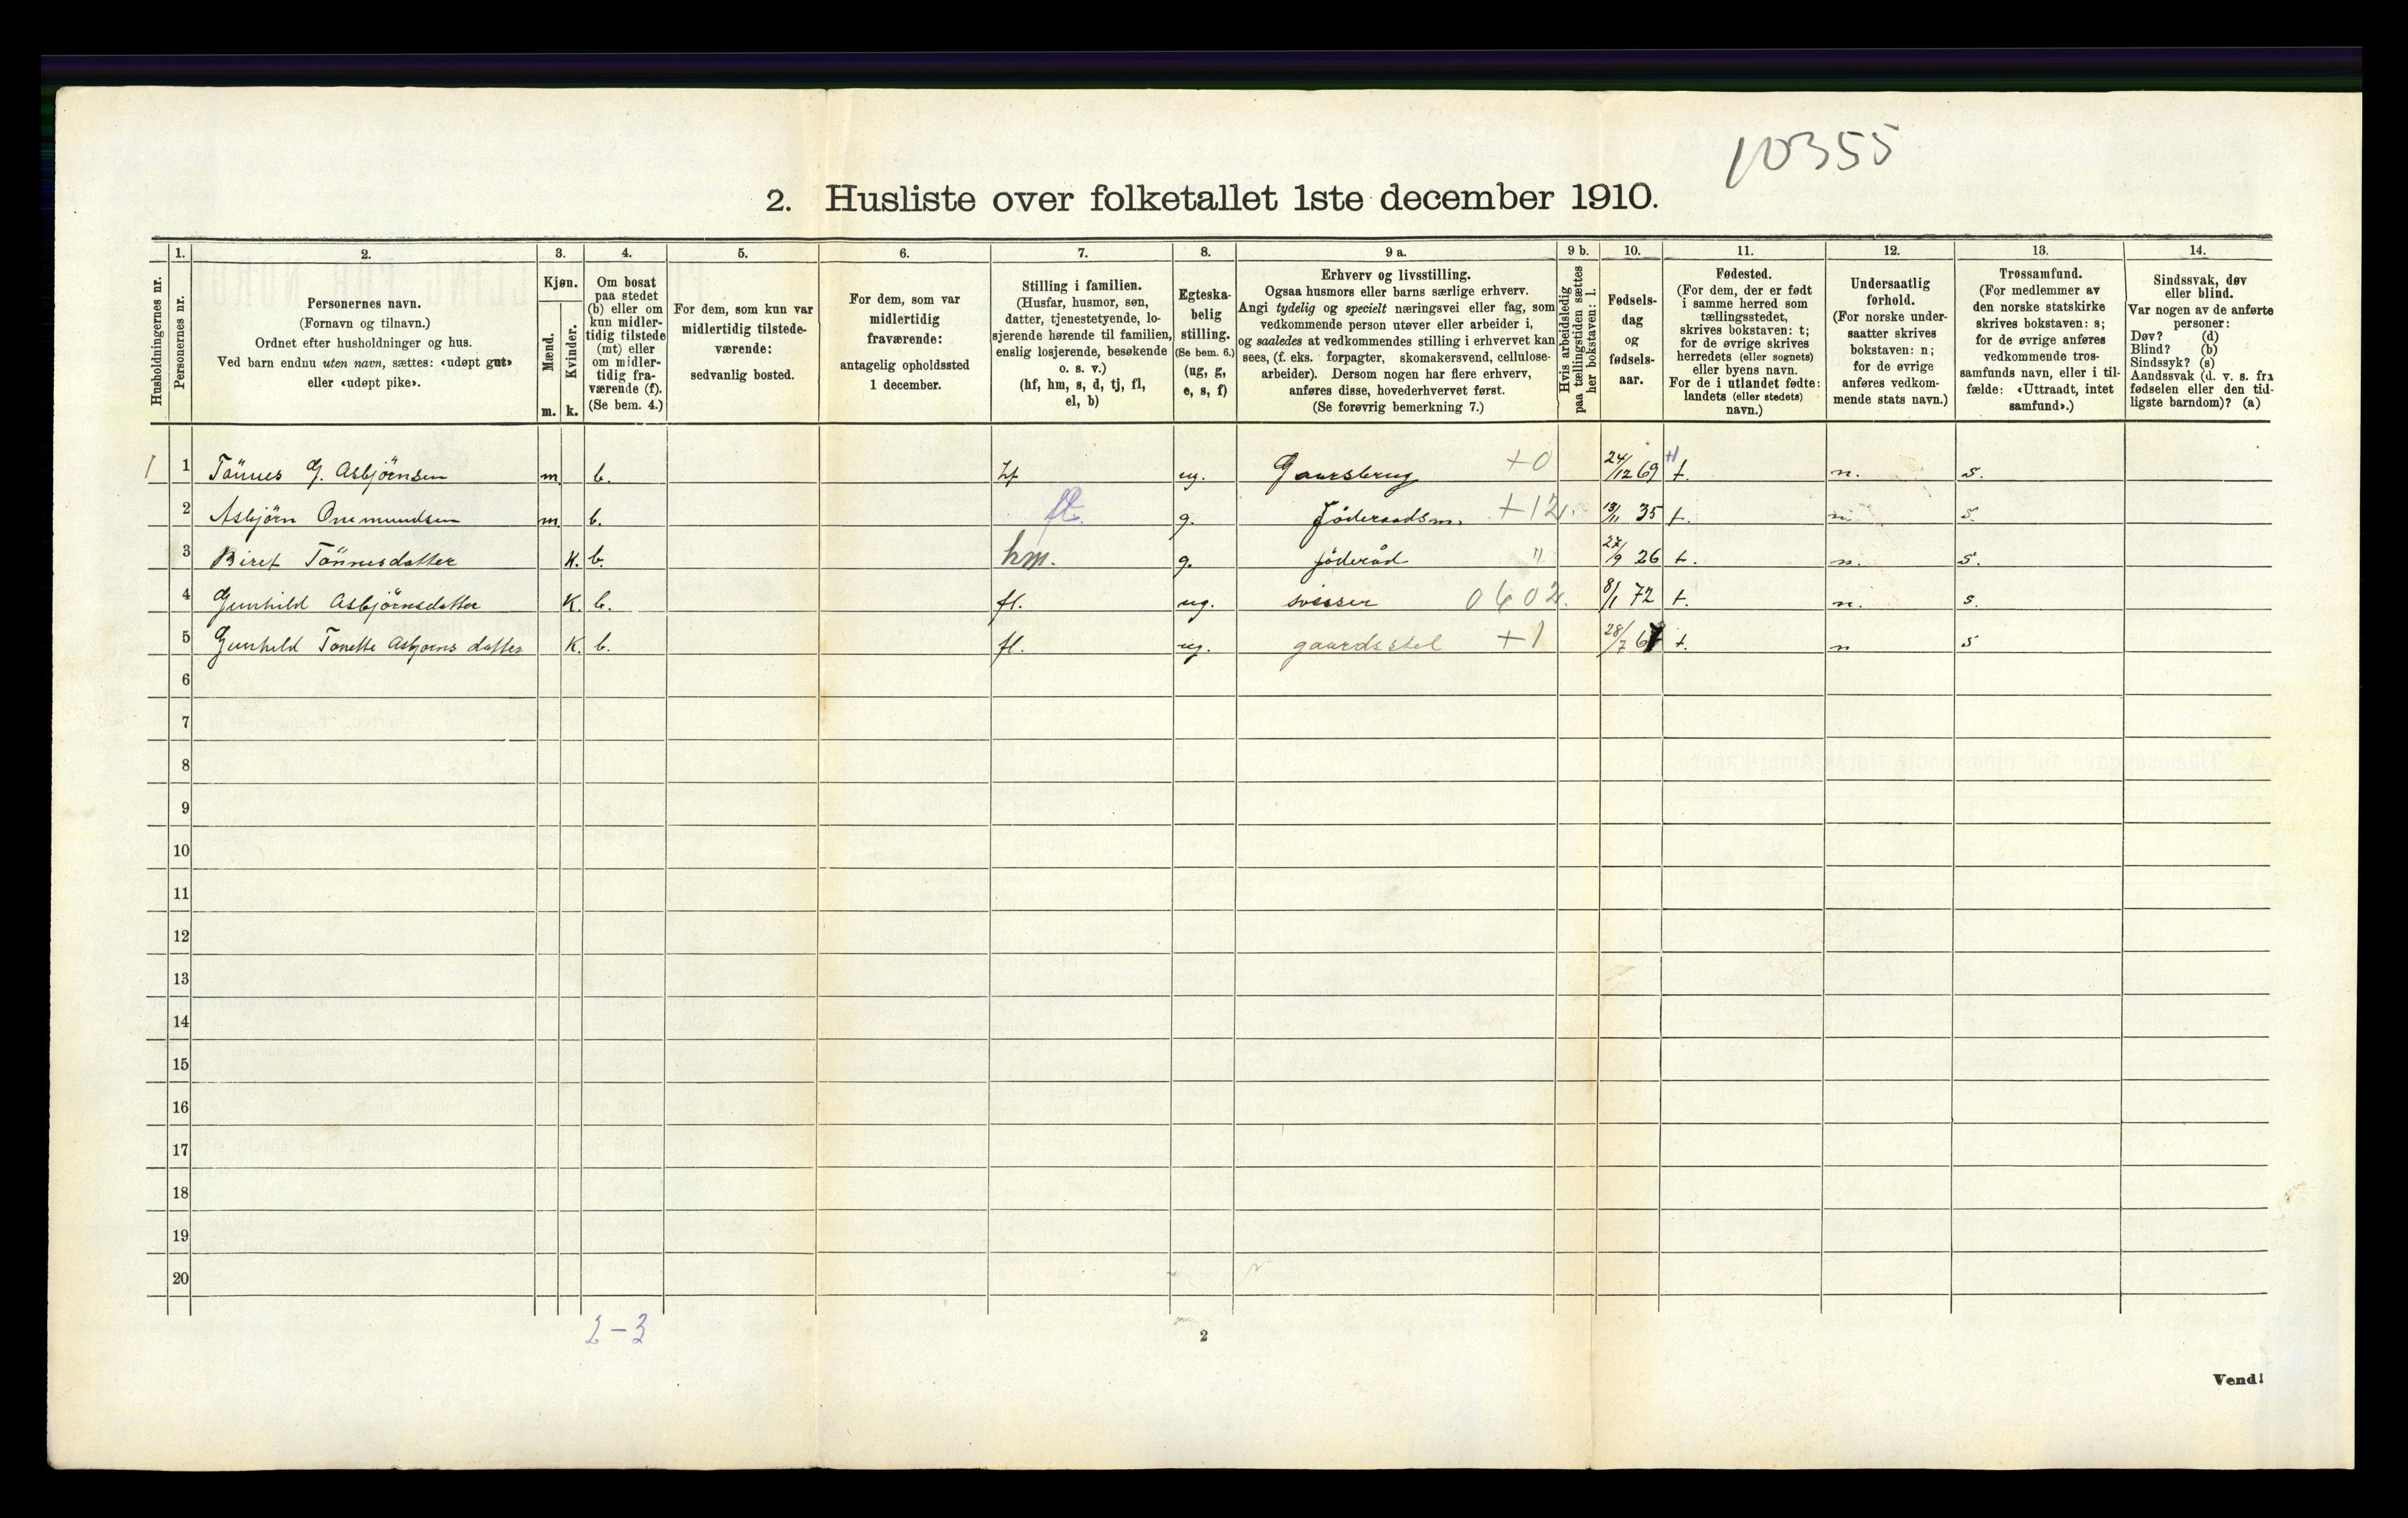 10355
2. Husliste over folketallet 1ste december 1910.
Husholdningernes nr.
1.
Personernes nr.
2.
Personernes navn.
(Fornavn og tilnavn.)
Ordnet efter husholdninger og hus.
Ved barn endnu uten navn, sættes: «udøpt gut»
eller «udøpt pike».
3.
Kjøn.
Mænd.
Kvinder.
m. k.
4.
Om bosat
paa stedet
(b) eller om
kun midler-
tidig tilstede
(mt) eller
om midler-
tidig fra-
værende (f).
(Se bem. 4.)
5.
For dem, som kun var
midlertidig tilstede-
værende:
sedvanlig bosted.
6.
For dem, som var
midlertidig
fraværende:
antagelig opholdssted
1 december.
7.
Stilling i familien.
(Husfar, husmor, søn,
datter, tjenestetyende, lo-
sjerende hørende til familien,
enslig losjerende, besøkende
o. s. v.)
(hf, hm, s, d, tj, fl,
el, b)
8.
Egteska-
belig
stilling.
(Se bem. 6.)
(ug, g,
e, s, f)
9 a.
Erhverv og livsstilling.
Ogsaa husmors eller barns særlige erhverv.
Angi tydelig og specielt næringsvei eller fag, som
vedkommende person utøver eller arbeider i,
og saaledes at vedkommendes stilling i erhvervet kan
sees, (f. eks. forpagter, skomakersvend, cellulose-
arbeider). Dersom nogen har flere erhverv,
anføres disse, hovederhvervet først.
(Se forøvrig bemerkning 7.)
9 b.
Hvis arbeidsledig
paa tællingstiden sættes
her bokstaven: l.
10.
Fødsels-
dag
og
fødsels-
aar.
11.
Fødested.
(For dem, der er født
i samme herred som
tællingsstedet,
skrives bokstaven: t;
for de øvrige skrives
herredets (eller sognets)
eller byens navn.
For de i utlandet fødte:
landets (eller stedets)
navn.)
12.
Undersaatlig
forhold.
(For norske under-
saatter skrives
bokstaven: n;
for de øvrige
anføres vedkom-
mende stats navn.)
13.
Trossamfund.
(For medlemmer av
den norske statskirke
skrives bokstaven: s;
for de øvrige anføres
vedkommende tros-
samfunds navn, eller i til-
fælde: «Uttraadt, intet
samfund».)
14.
Sindssvak, døv
eller blind.
Var nogen av de anførte
personer:
Døv? (d)
Blind? (b)
Sindssyk? (s)
Aandssvak (d. v. s. fra
fødselen eller den tid-
ligste barndom)? (a)
1 1 Tönnes G. Asbjörnsen m. b. hf ug. Gaarsbrug +0 24/12 69 t. n. s.
2 Asbjörn Onemundsen m. b. fl. g. Föderaadsm. +12 13/11 35 t. n. s.
3 Biret Tönnesdatter K. b. hm. g. föderåd " 27/9 26 t. n. s.
4 Gunhild Asbjörnsdatter K. b. fl. ug. 0602 8/1 72 t. n. s.
5 Gunhild Tonette Asbjorns datter K. b. fl. ug. gaardsstel +1 28/7 67 t. n s
6
7
8
9
10
11
12
13
14
15
16
17
18
19
20
2-3
2
Vend!